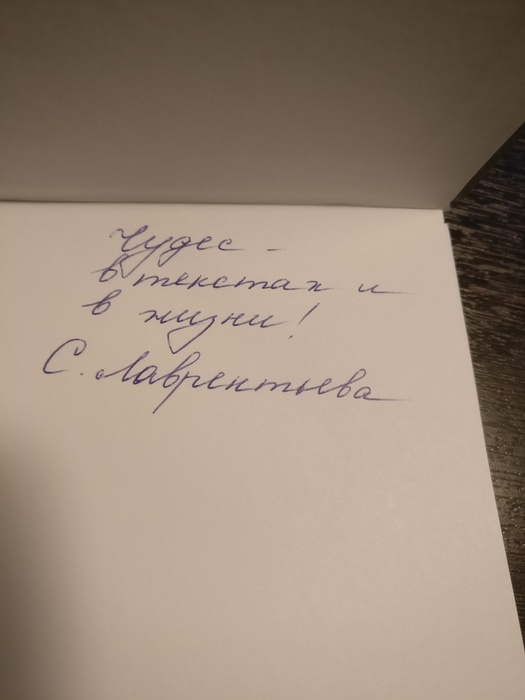 Чудес -
в текстах и
в жизни!
С. Лаврентьева